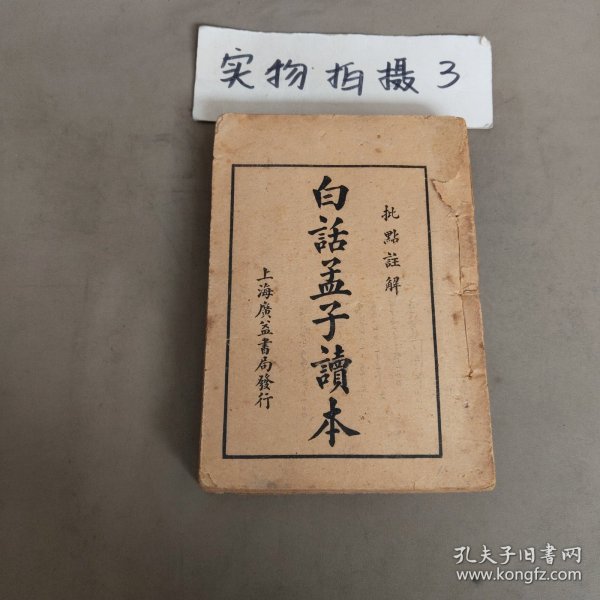 实物拍摄3
批點註解
白話孟子讀本
上海廣益書局發行
孔夫子旧书网
www.kongfz.com